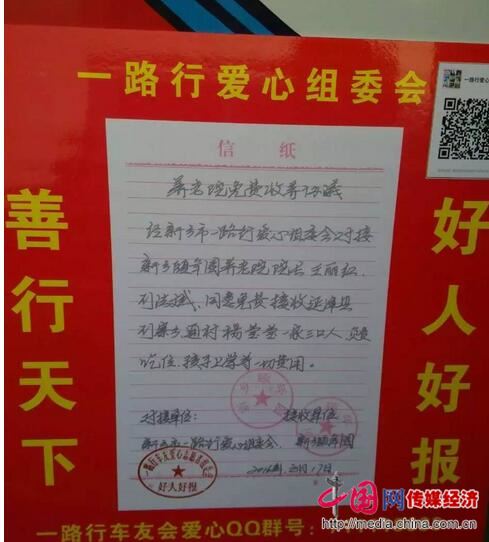 一路行爱心组委会
一路行爱心
善行天下
好人好报
信 纸
养老院免费收养协议
经新乡市一路行爱心组委会对接
新乡颐年园养老院院长王丽红、
同意免费接收延津县
通村杨莹莹一家三口人,负责
吃住、孩子上学等一切费用。
对接单位: 接收单位
新乡市一路行爱心组委会、 新乡颐年园
2016年 月17日
好人好报
中国网传媒经济
http://media.china.com.cn
一路行车友会爱心QQ群号: